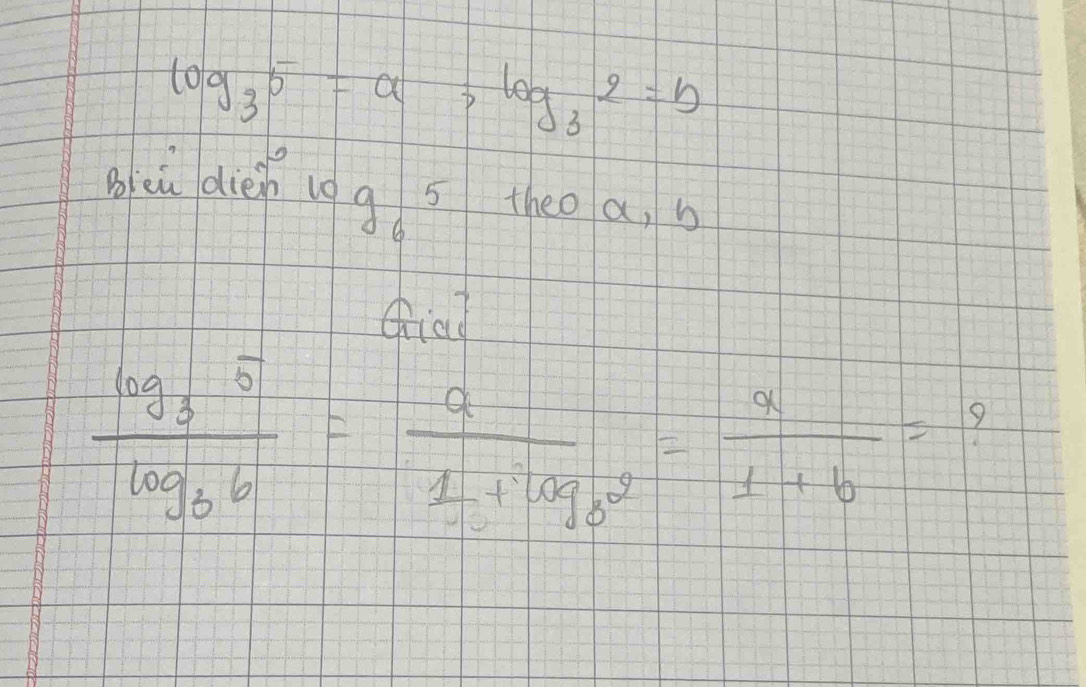 log₃ 5 = a , log₃ 2 = b
Biểu diễn log₆ 5 theo a, b
Giải
log₃ 5 / log₃ 6 = a / (1 + log₃ 2) = a / (1 + b) = ?